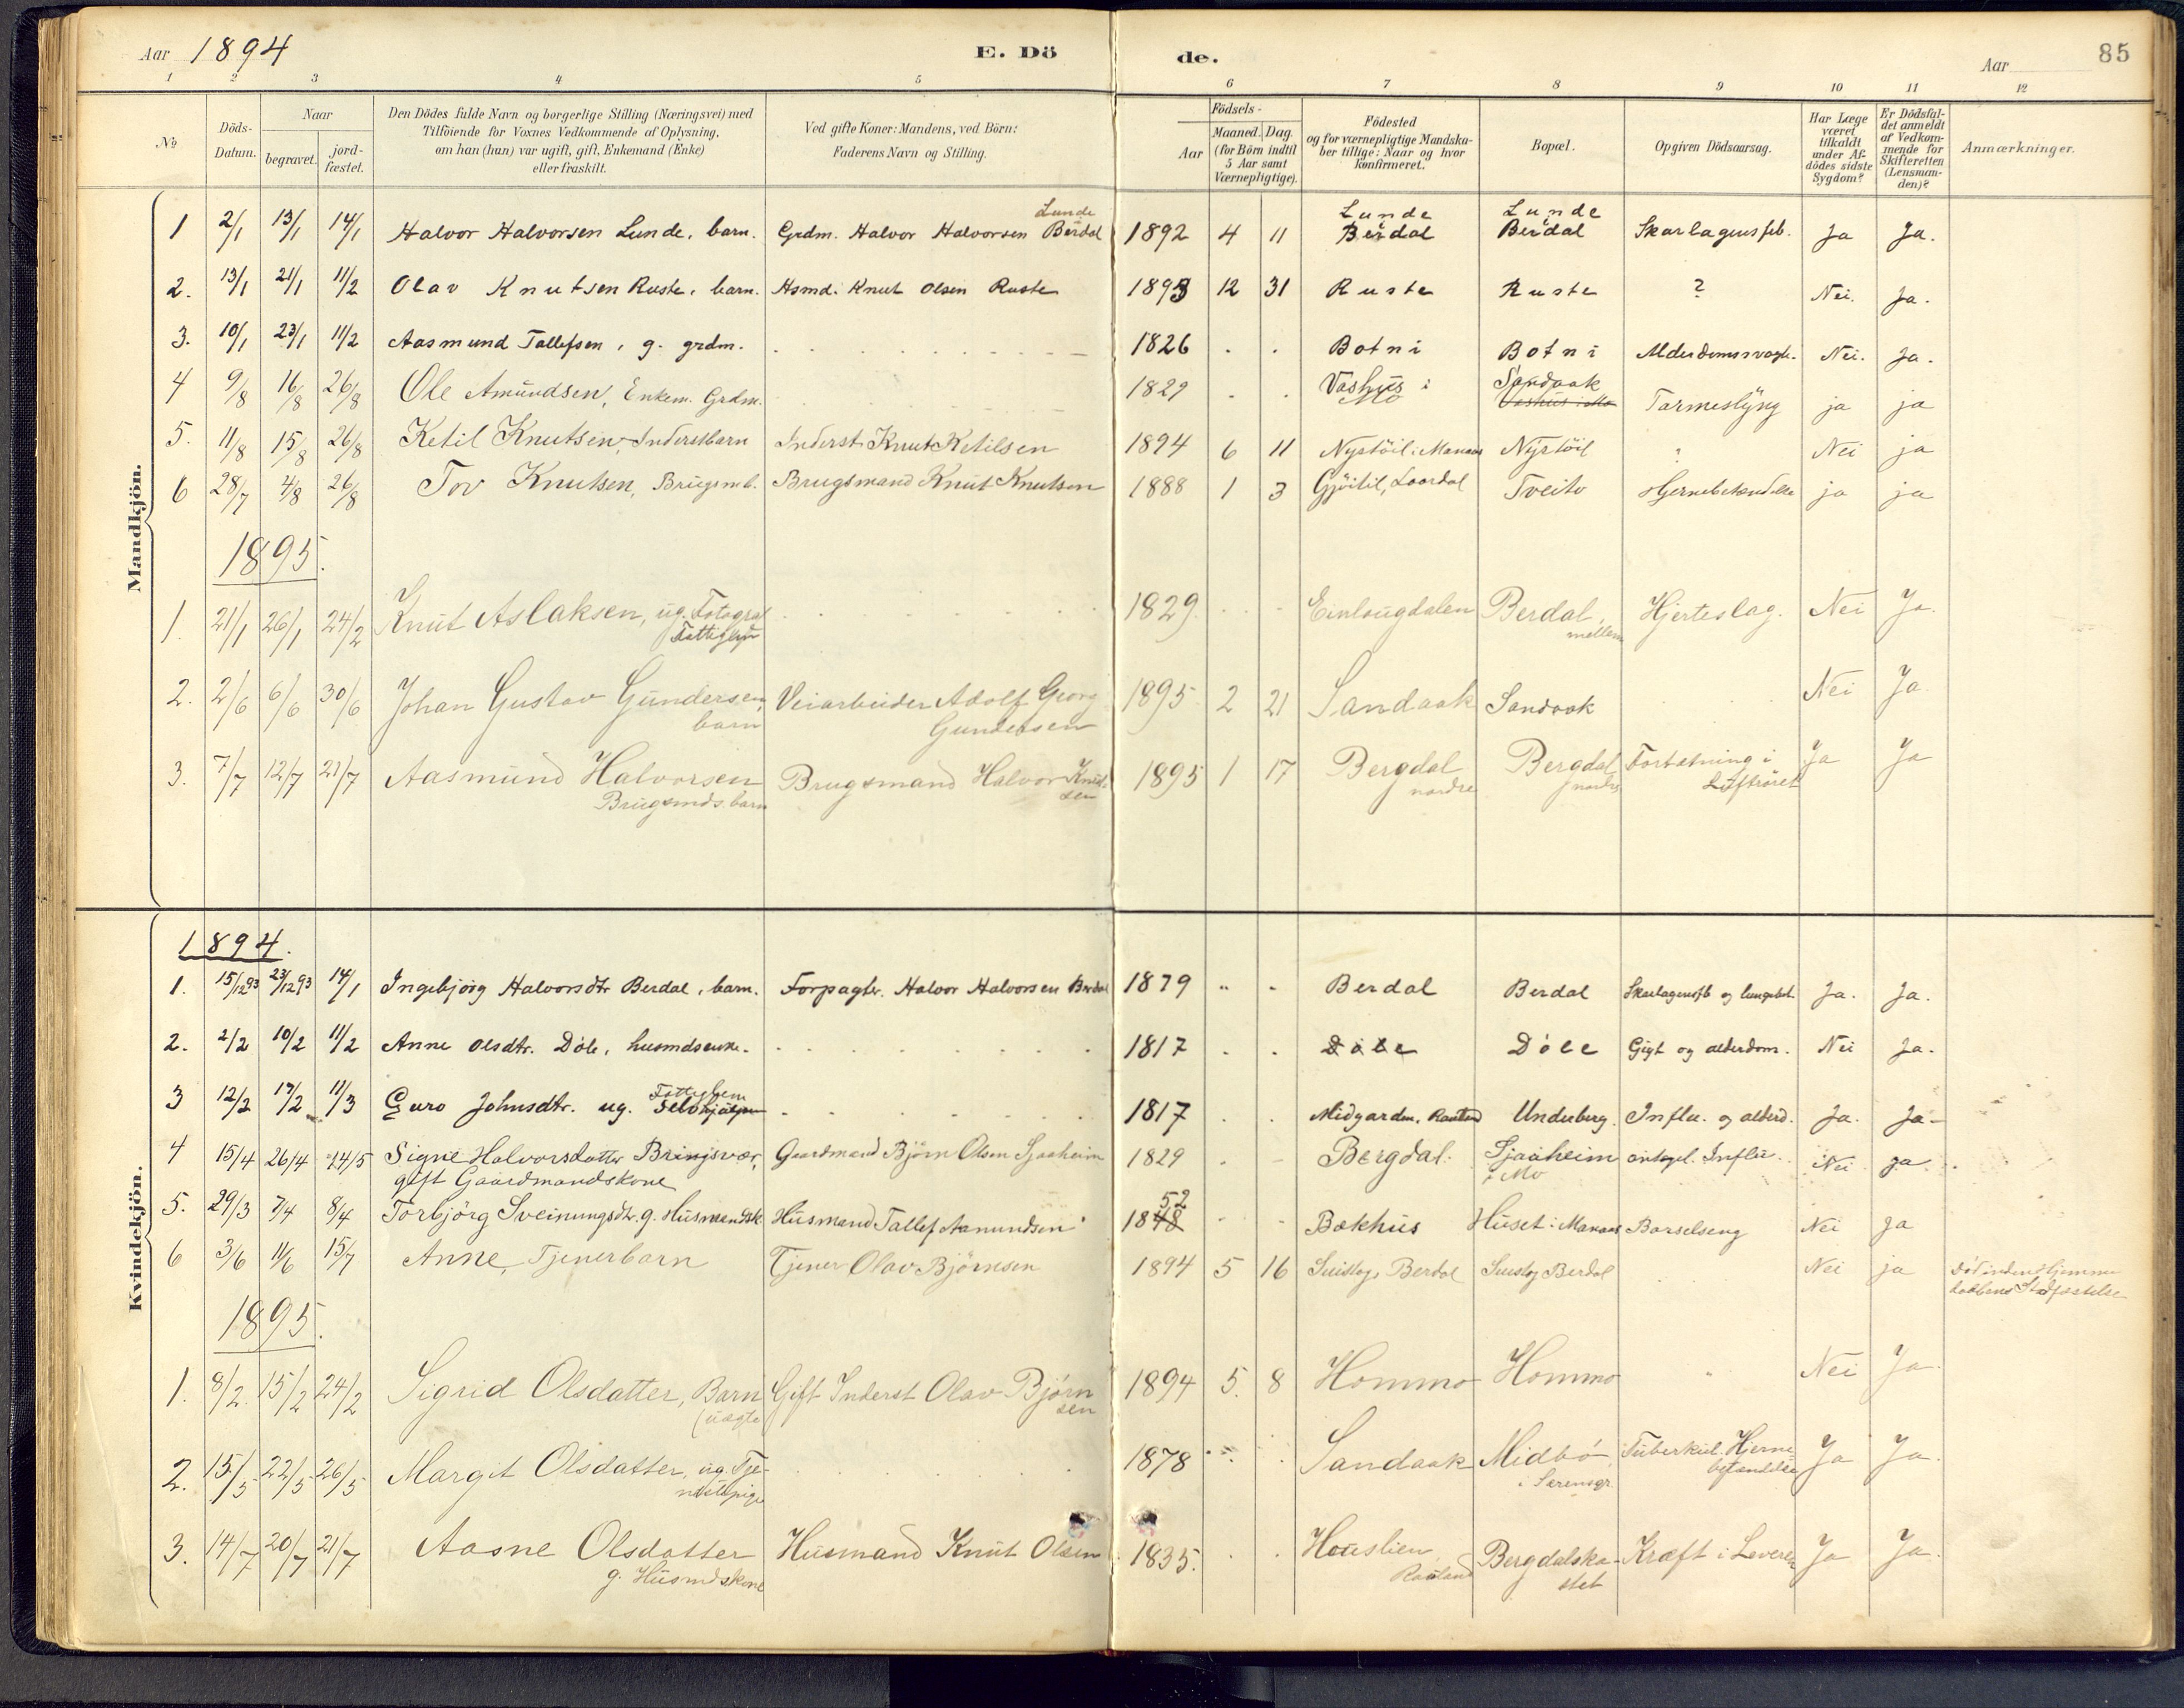 Aar 1894 E. Dö de. Aar 85
1 2 3 4 5 6 7 8 9 10 11 12
No
Döds-Datum.
Naar
begravet. jordfæstet.
Den Dödes fulde Navn og borgerlige Stilling (Næringsvei) med
Tilföiende for Voxnes Vedkommende af Oplysning,
om han (hun) var ugift, gift, Enkemand (Enke)
eller fraskilt.
Ved gifte Koner: Mandens, ved Börn:
Faderens Navn og Stilling.
Födsels-
Aar
Maaned. Dag.
(for Börn indtil
5 Aar samt
Værnepligtige).
Födested
og for værnepligtige Mandskaber tillige: Naar og hvor
konfirmeret.
Bopæl.
Opgiven Dödsaarsag.
Har Læge
været
tilkaldt
under Afdödes sidste
Sygdom?
Er Dödsfaldet anmeldt
af Vedkommende for
Skifteretten
(Lensmanden)?
Anmærkninger.
Mandkjön.
1 2/1 13/1 14/1 Halvor Halvorsen Lunde, barn. Grdm. Halvor Halvorsen Lunde Berdal 1892 4 11 Lunde Berdal Lunde Berdal Skarlagensfeb. Ja Ja.
2. 13/1 21/1 11/2 Olav Knutsen Ruste, barn. Hsmd. Knut Olsen Ruste 1893 12 31 Ruste Ruste ? Nei. Ja.
3. 10/1 23/1 11/2 Aasmund Tallefsen, g. grdm. 1826 Botni Botni Alderdomssvagh. Nei. Ja.
4 9/8 16/8 26/8 Ole Amundsen, Enkem. Grdm. 1829 Vashus i Mo Sandaak Vashus i Mo Tarmeslyng ja ja
5. 11/8 15/8 26/8 Ketil Knutsen, Inderstbarn Inderst Knut Ketilsen 1894 6 11 Nystöil i Manaas Nystöil ? Nei ja
6 28/7 4/8 26/8 Tov Knutsen, Brugsmb. Brugsmand Knut Knutsen 1888 1 3 Gjöitil, Laardal Tveito Hjernebetændelse ja ja
1895.
1. 21/1 26/1 24/2 Knut Aslaksen, ug. Fotograf 1829 Einlougdalen Berdal, mellem Hjerteslag. Nei Ja.
2. 2/6 6/6 30/6 Johan Gustav Gundersen, barn Veiarbeider Adolf Georg Gundersen 1895 2 21 Sandaak Sandaak Nei Ja
3. 7/7 12/7 21/7 Aasmund Halvorsen Brugsmds. barn Brugsmand Halvor Knudsen 1895 1 17 Bergdal nordre Bergdal nordre Fortetning i Luftröret Ja Ja
Kvindekjön.
1894.
1. 15/12 93 23/12 93 14/1 Ingebjörg Halvorsdtr Berdal, barn. Forpagtr. Halvor Halvorsen Berdal 1879 Berdal Berdal Skarlagensfb og lungebet. Ja. Ja.
2. 2/2 10/2 11/2 Anne Olsdtr. Döle, husmdsenke. 1817 Döle Döle Gigt og alderdom. Nei Ja.
3 12/2 17/2 11/3 Guro Johnsdtr. ug. 1817 Midgarden, Rauland Underberg. Influ. og alderd. Ja. Ja
4 15/4 26/4 14/5 Signe Halvorsdatter Bringsvær, gift Gaardmandskone Gaardmand Björn Olsen Sjaaheim 1829 Bergdal. Sjaaheim i Mo Influ. Nei ja
5. 29/3 7/4 8/4 Torbjörg Sveinungsdtr. g. Husmandsk Husmand Tallef Aamundsen 1848 52 Bakhus Huset i Manaas Barselseng Nei ja
6 3/6 11/6 15/7 Anne, Tjenerbarn Tjener Olav Björnsen 1894 5 16 Berdal Berdal Nei ja död inden Hjemmedaabens Stadfæstelse
1895.
1. 8/2 15/2 24/2 Sigrid Olsdatter, Barn (uægte Gift Inderst Olav Björnsen 1894 5. 8 Hommo Hommo " Nei Ja
2. 15/5 22/5 26/5 Margit Olsdatter, ug. Tjenestepige 1878 Sandaak Midbö, Tuberkul. Hjernebetændelse Ja Ja.
3. 14/7 20/7 21/7 Aasne Olsdatter g. Husmdskone Husmand Knut Olsen 1835. Houslien Rauland Bergdalskastet Kræft i Leveren Ja Ja.